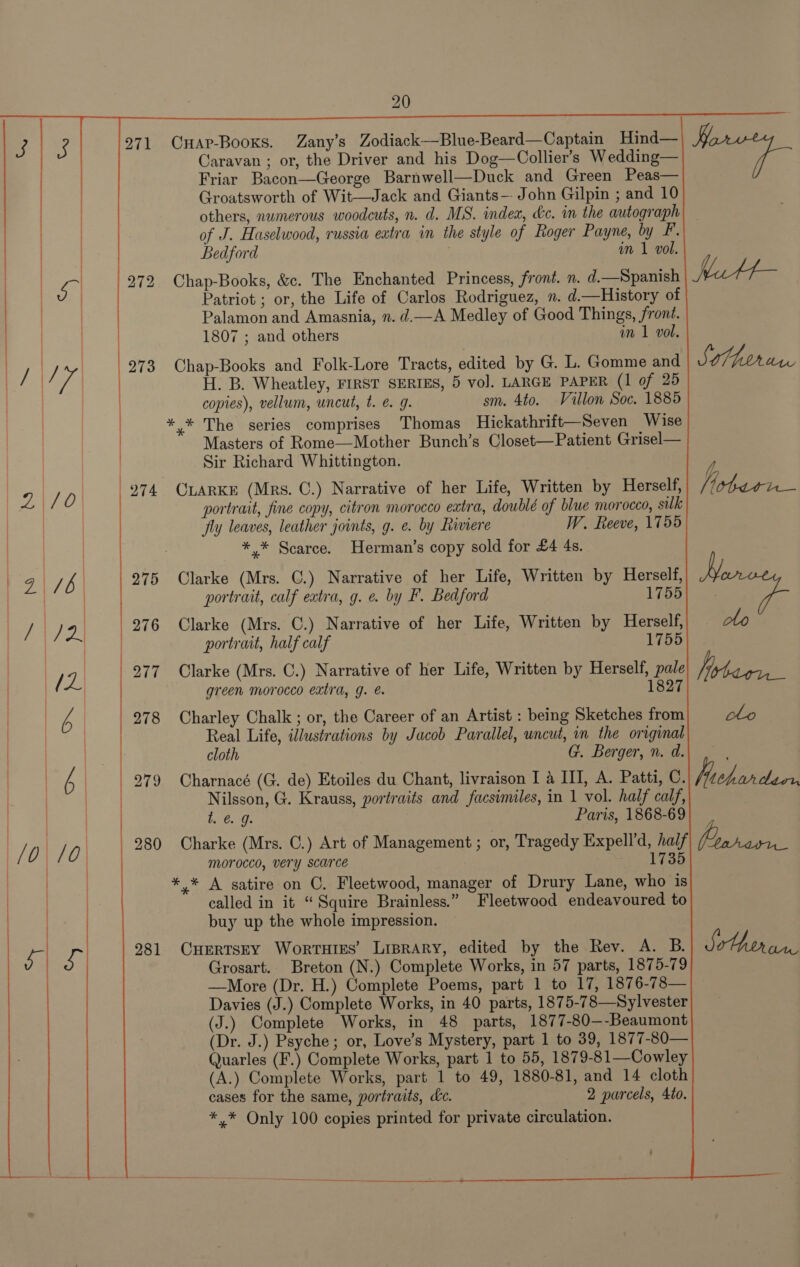 20
3 3 271 CHAP-BOOKS. Zany's Zodiack—Blue-Beard—Captain Hind— Harvey
Caravan ; or, the Driver and his Dog—Collier's Wedding—
Friar Bacon—George Barnwell—Duck and Green Peas—
Groatsworth of Wit—Jack and Giants—John Gilpin ; and 10
others, numerous woodcuts, n. d. MS. index, &c. in the autograph
of J. Haslewood, russia extra in the style of Roger Payne, by F.
Bedford in 1 vol.
5 272 Chap-Books, &c. The Enchanted Princess, front. n. d.—Spanish Nutt
Patriot ; or, the Life of Carlos Rodriguez, n. d.—History of
Palamon and Amasnia, n. d.—A Medley of Good Things, front.
1807 ; and others in 1 vol.
1 17 273 Chap-Books and Folk-Lore Tracts, edited by G. L. Gomme and Sotheran
H. B. Wheatley, FIRST SERIES, 5 vol. LARGE PAPER (1 of 25
copies), vellum, uncut, t. e. g. sm. 4to. Villon Soc. 1885
*** The series comprises Thomas Hickathrift—Seven Wise
Masters of Rome—Mother Bunch's Closet—Patient Grisel—
Sir Richard Whittington.
2 10 274 CLARKE (Mrs. C.) Narrative of her Life, Written by Herself, Robson
portrait, fine copy, citron morocco extra, doublé of blue morocco, silk
fly leaves, leather joints, g. e. by Riviere W. Reeve, 1755
*** Scarce. Herman's copy sold for £4 4s.
2 16 275 Clarke (Mrs. C.) Narrative of her Life, Written by Herself, Harvey
portrait, calf extra, g. e. by F. Bedford 1755
1 12 276 Clarke (Mrs. C.) Narrative of her Life, Written by Herself, do
portrait, half calf 1755
12 277 Clarke (Mrs. C.) Narrative of her Life, Written by Herself, pale Robson
green morocco extra, g. e. 1827
6 278 Charley Chalk ; or, the Career of an Artist : being Sketches from do
Real Life, illustrations by Jacob Parallel, uncut, in the original
cloth G. Berger, n. d.
6 279 Charnacé (G. de) Etoiles du Chant, livraison I à III, A. Patti, C. Richardson
Nilsson, G. Krauss, portraits and facsimiles, in 1 vol. half calf,
t. e. g. Paris, 1868-69
10 10 280 Charke (Mrs. C.) Art of Management ; or, Tragedy Expell'd, half Pearson
morocco, very scarce 1735
*** A satire on C. Fleetwood, manager of Drury Lane, who is
called in it “Squire Brainless.” Fleetwood endeavoured to
buy up the whole impression.
5 5 281 CHERTSEY WORTHIES' LIBRARY, edited by the Rev. A. B. Sotheran
Grosart. Breton (N.) Complete Works, in 57 parts, 1875-79
—More (Dr. H.) Complete Poems, part 1 to 17, 1876-78—
Davies (J.) Complete Works, in 40 parts, 1875-78—Sylvester
(J.) Complete Works, in 48 parts, 1877-80—Beaumont
(Dr. J.) Psyche ; or, Love's Mystery, part 1 to 39, 1877-80—
Quarles (F.) Complete Works, part 1 to 55, 1879-81—Cowley
(A.) Complete Works, part 1 to 49, 1880-81, and 14 cloth
cases for the same, portraits, &c. 2 parcels, 4to.
*** Only 100 copies printed for private circulation.